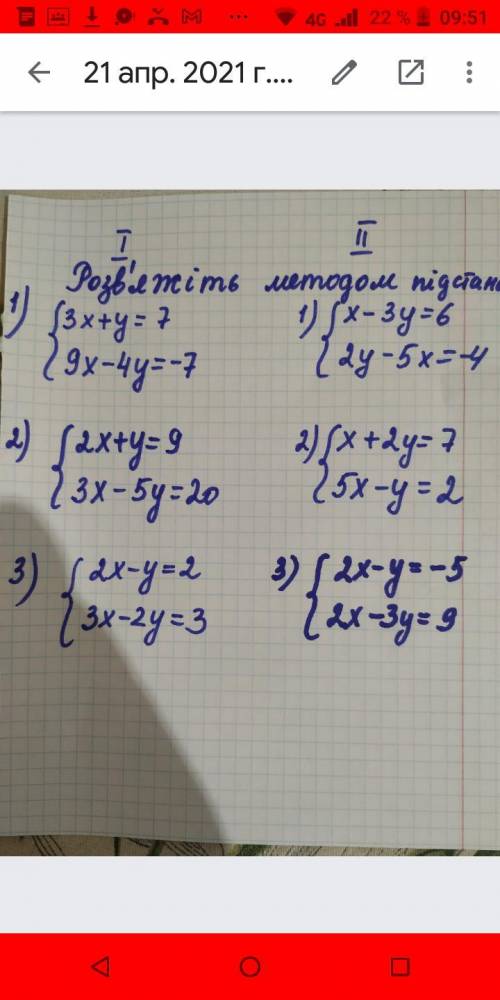 4G 22 % 09:51
21 апр. 2021 г....
I II
Розв'яжіть методом підстан
1) {3x+y=7
9x-4y=-7
1) {x-3y=6
2y-5x=-4
2) {2x+y=9
3x-5y=20
2) {x+2y=7
5x-y=2
3) {2x-y=2
3x-2y=3
3) {2x-y=-5
2x-3y=9